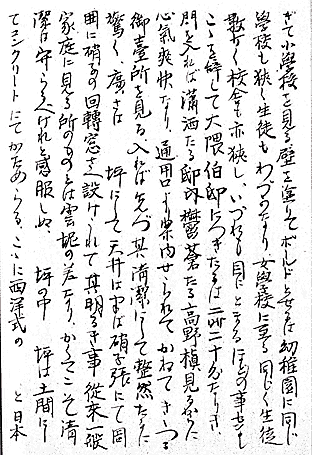 きて小学校を見る壁を塗りてボールドと女子は幼稚園に同じ
学校も狭し生徒もわづかなり女学校に至る同じく生徒
数少く校舎も亦狭し、いづれも目にとまるほどの事もな
こゝを辞して大隈伯邸につきたるは二時二十分なりき、
門を入れば瀟洒たる邸内鬱蒼たる高野槙見るからに
心気爽快なり、通用口より案内せられてかねてきゝつる
御臺所を見る、入れば先づ其清潔にして整然たるに
驚く、廣さは 坪にして天井は半ば硝子張にて周
囲に硝子の回轉窓さへ設けられて其明るき事従来一般
家庭に見る所のものとは雲泥の差なり、かくてこそ清
潔は守らるべけれと感服しぬ 坪の中 坪は土間に
てコンクリートにてかためらる、こゝに西洋式の と日本